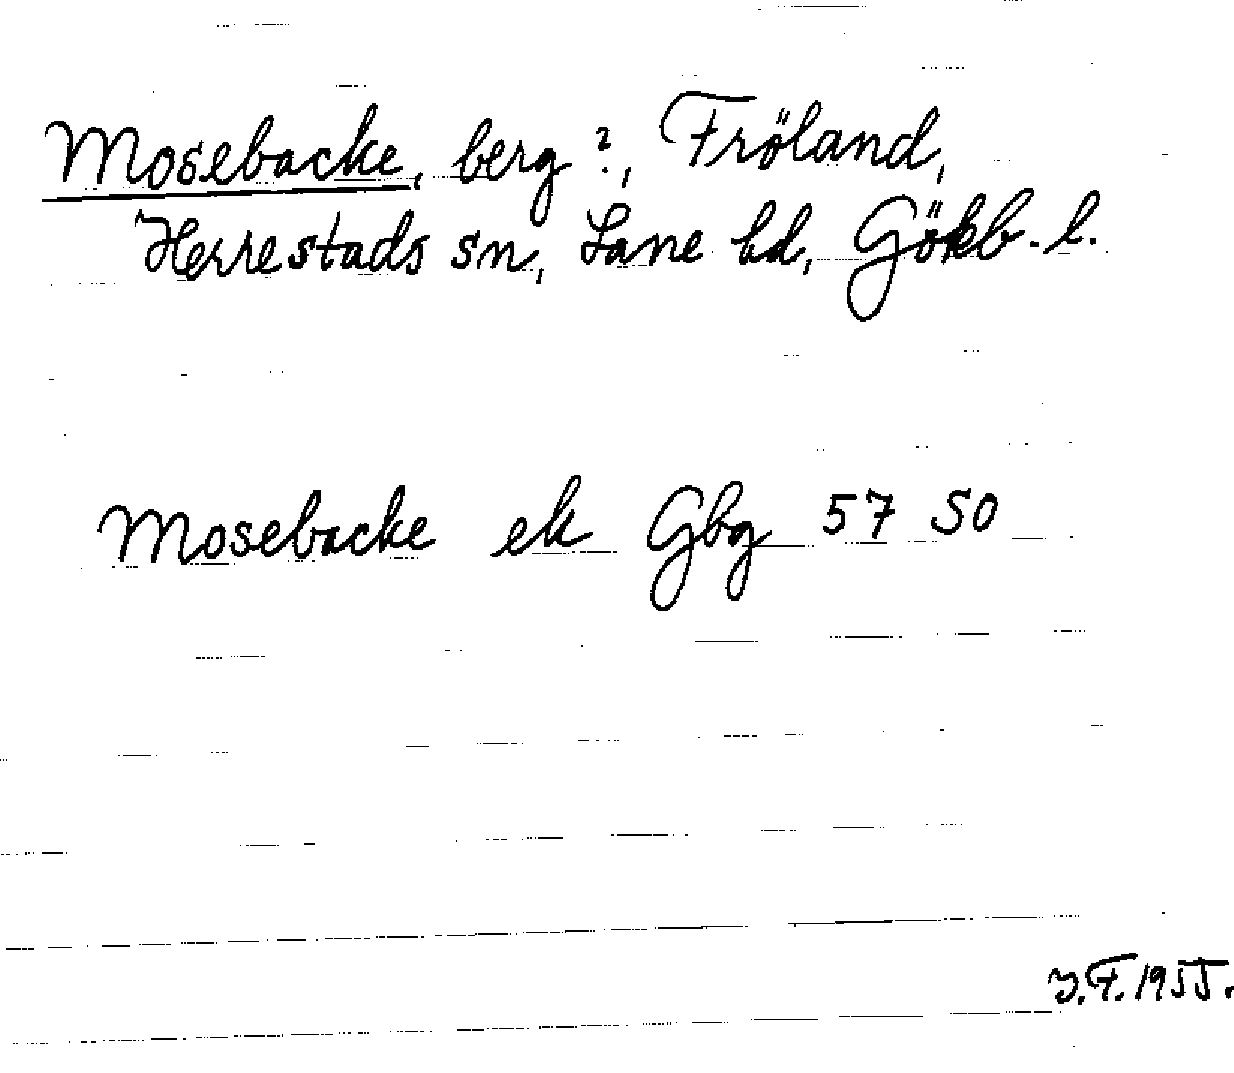 Mosebacke, berg?, Fröland,
Herrestads sn, Lane hd, Gökb. l.
Mosebacke ek Gbg 57 50
J.F. 1955.